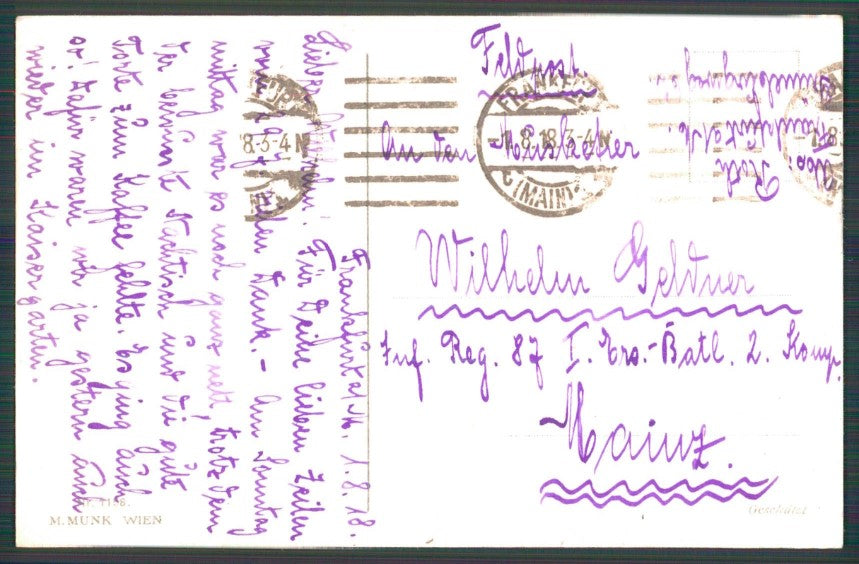 Frankfurt a/M. 1.8.18.
Für Deine lieben Zeilen
vielen Dank. – Am Sonntag
mittag war es noch ganz nett, trotzdem
der bewusste Nachtisch und die gute
Torte zum Kaffee fehlte. Es ging auch
so! Dafür waren wir ja gestern auch
wieder im Kaisergarten.
1198.
M. MUNK WIEN
Feldpost.
An den Musketier
Wilhelm Geldner
Inf. Reg. 87 I. Ers.-Batl. 2. Komp.
Mainz.
FRANKFURT
1.8.18.3-4 N
(MAIN)
8.3-4 N
Abs:
Roth
Frankfurt a/M.
Geschützt